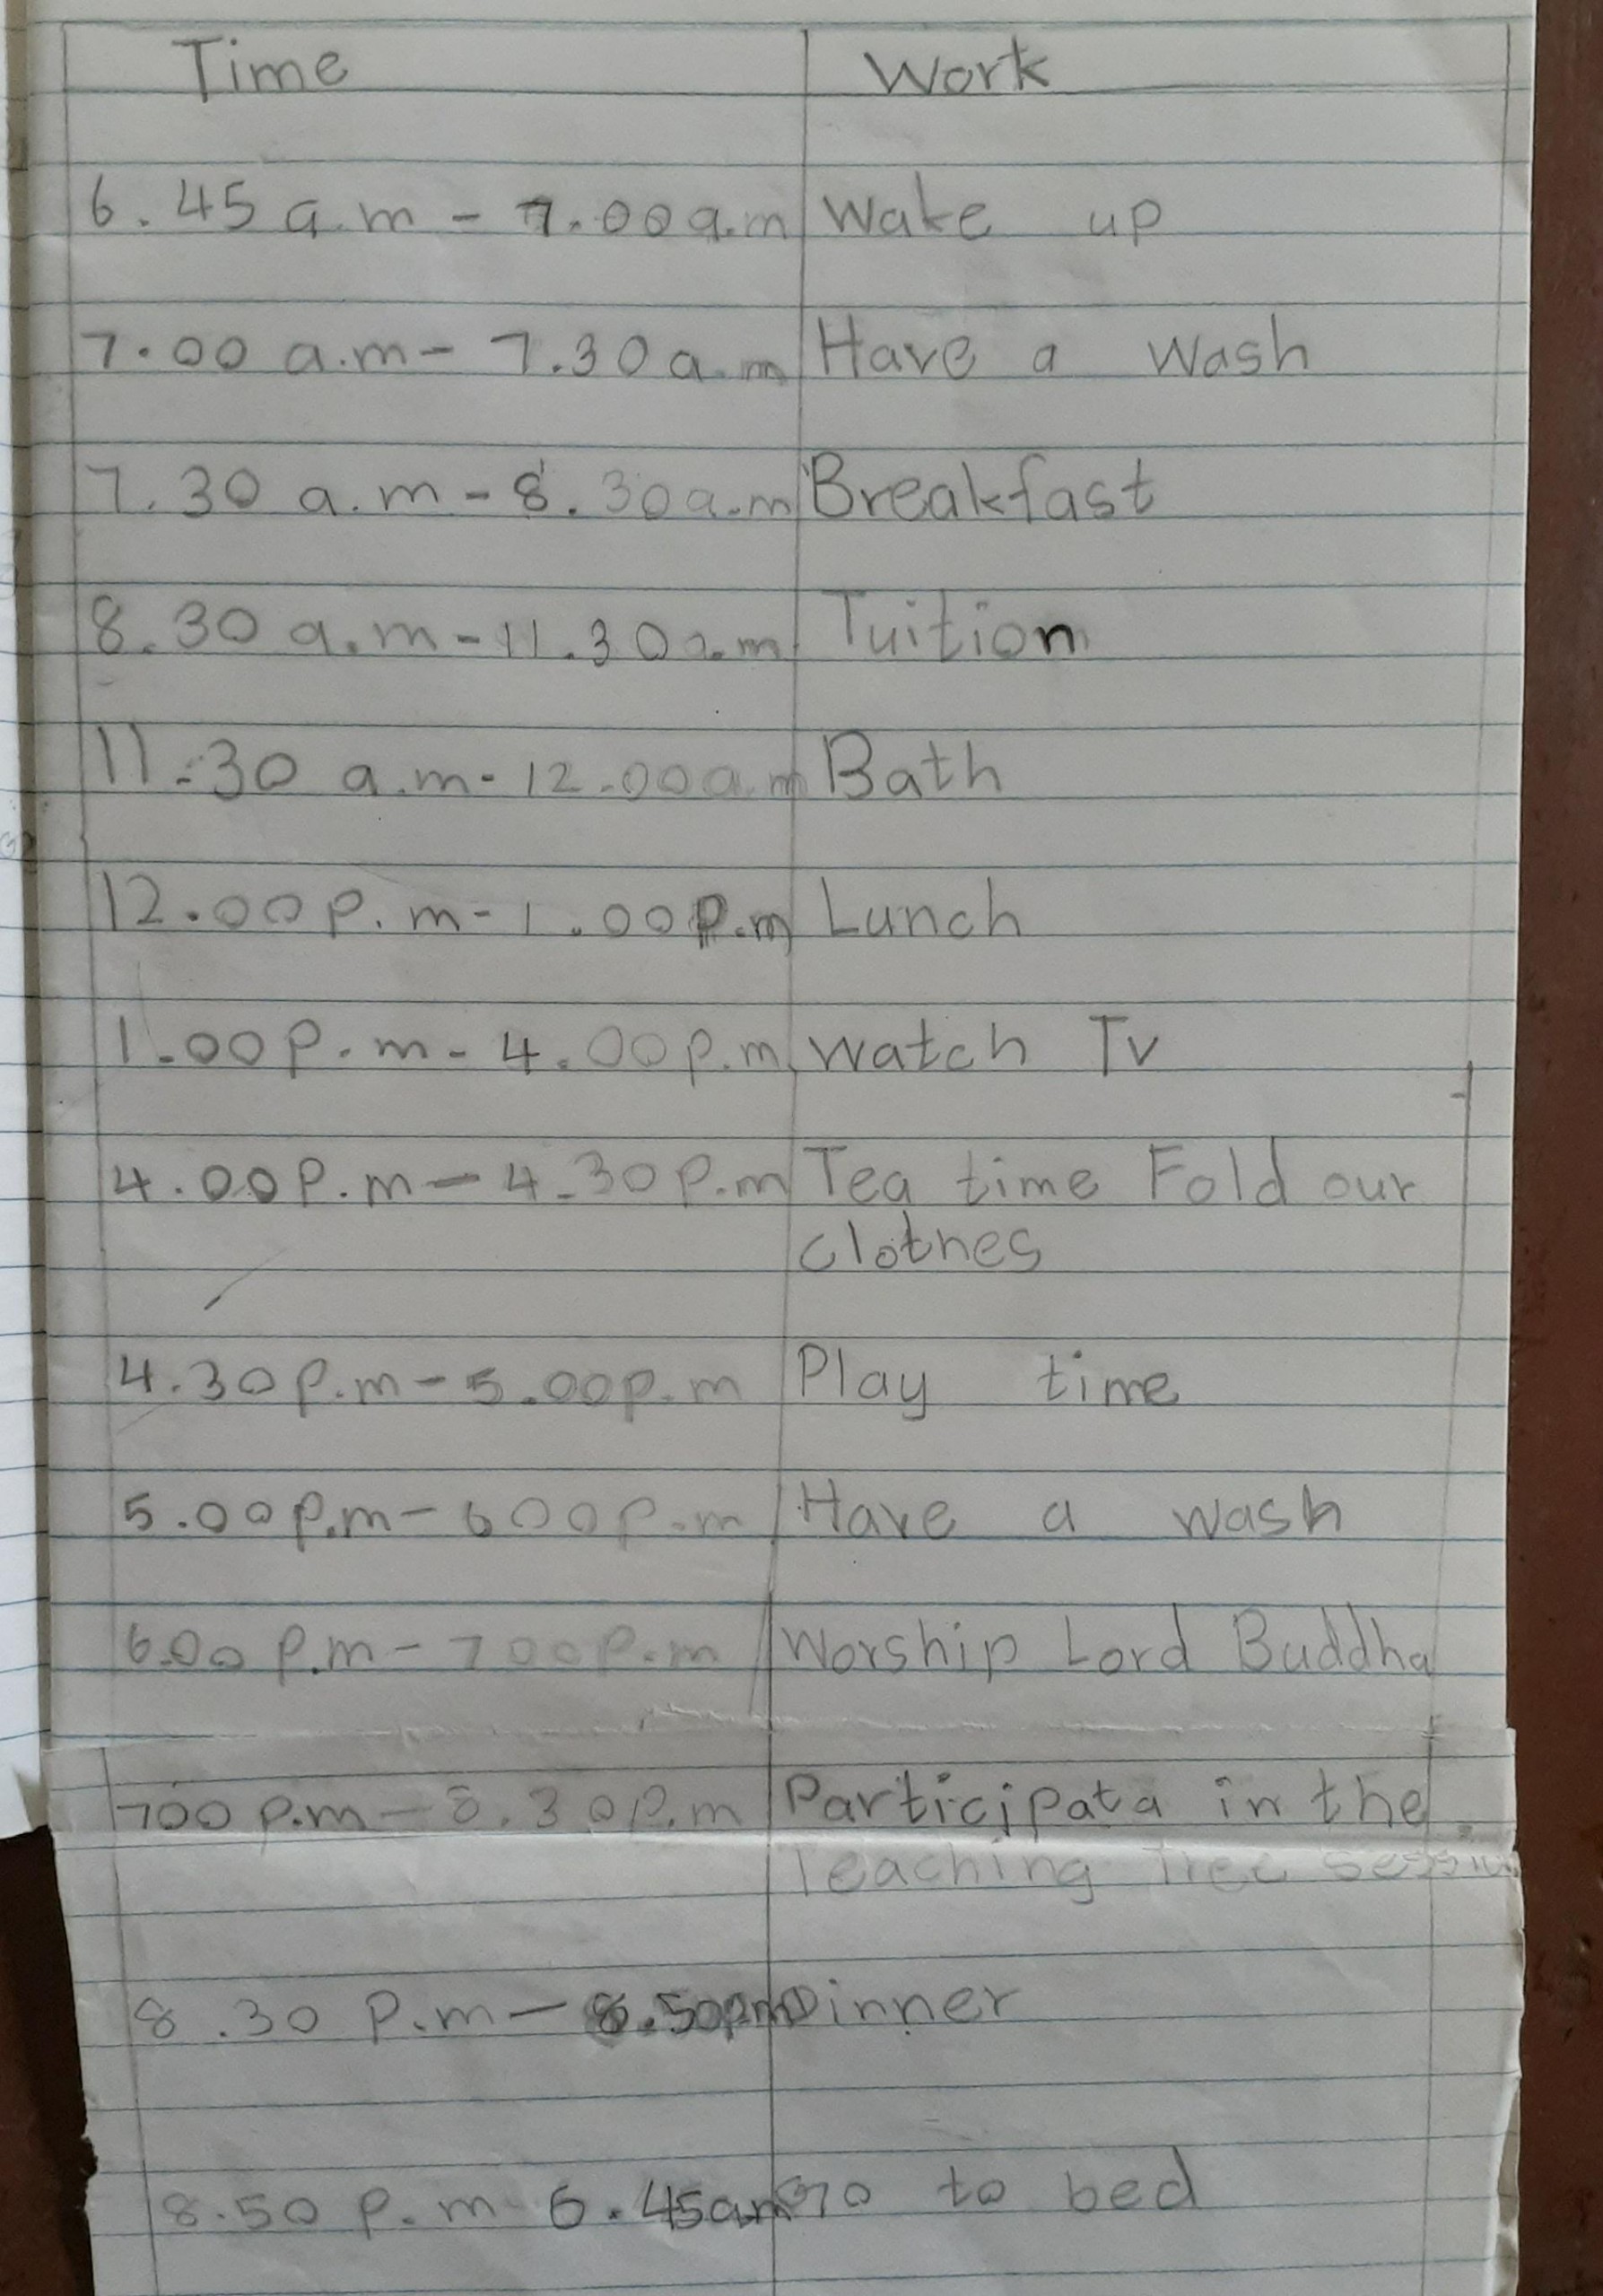 Time Work
6.45 a.m - 7.00a.m Wake up
7.00 a.m - 7.30a.m Have a wash
7.30 a.m - 8.30a.m Breakfast
8.30 a.m - 11.30a.m Tuition
11.30 a.m - 12.00a.m Bath
12.00p.m - 1.00p.m Lunch
1.00p.m - 4.00p.m Watch Tv
4.00p.m - 4.30p.m Tea time Fold our
clothes
4.30p.m - 5.00p.m Play time
5.00p.m - 600p.m Have a wash
6.00 p.m - 700p.m Worship Lord Buddha
700 p.m - 8.30p.m Participata in the
Teaching Tree session
8.30 p.m - 8.50pm Dinner
8.50 p.m 6.45am Go to bed